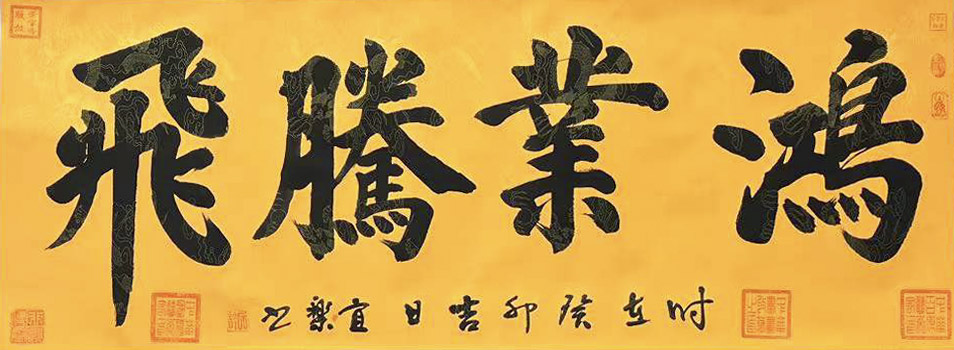 鴻業騰飛
时在癸卯吉日宜樂书